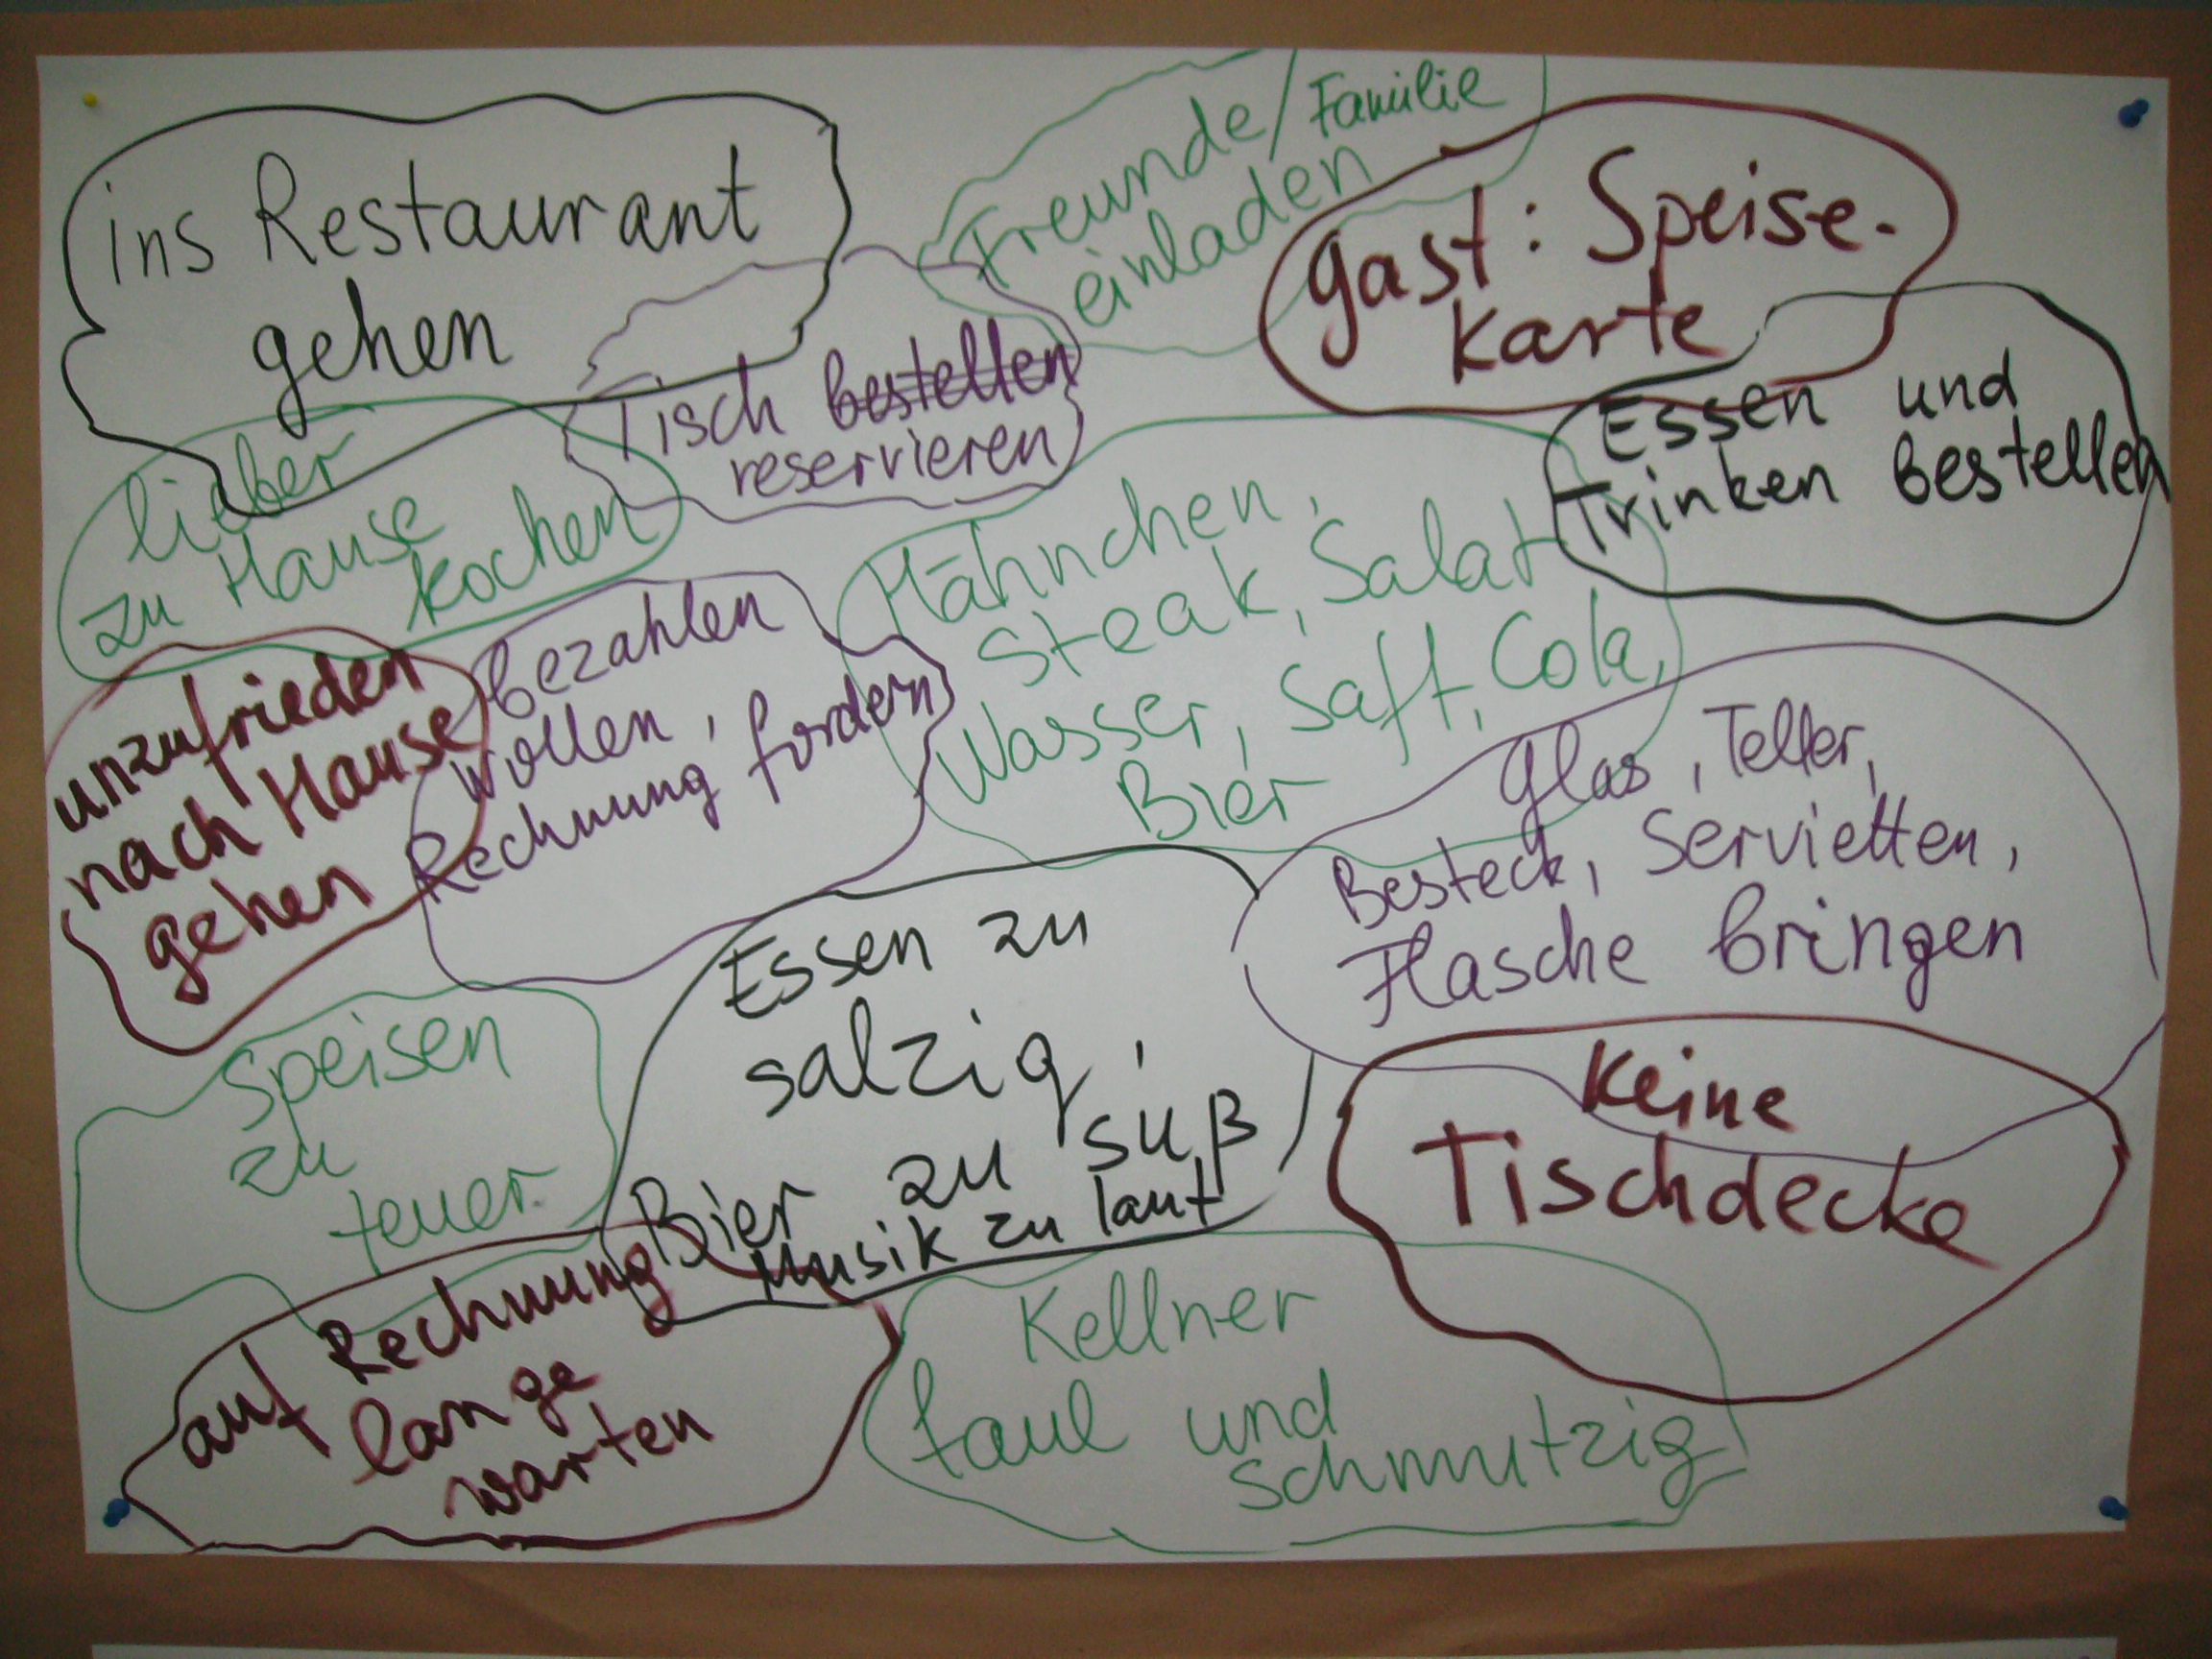 ins Restaurant
gehen
Freunde/Familie
einladen
Gast: Speise-
karte
Tisch bestellen
reservieren
Essen und
Trinken bestellen
lieber
zu Hause
kochen
Hähnchen,
Steak, Salat
Wasser, Saft, Cola,
Bier
unzufrieden
nach Hause
gehen
bezahlen
wollen, fordern
Rechnung
Glas, Teller,
Besteck, Servietten,
Flasche bringen
Essen zu
salzig,
Bier zu süß
Musik zu laut
Keine
Tischdecke
Speisen
zu
teuer
auf Rechnung
lange
warten
Kellner
faul und
schmutzig